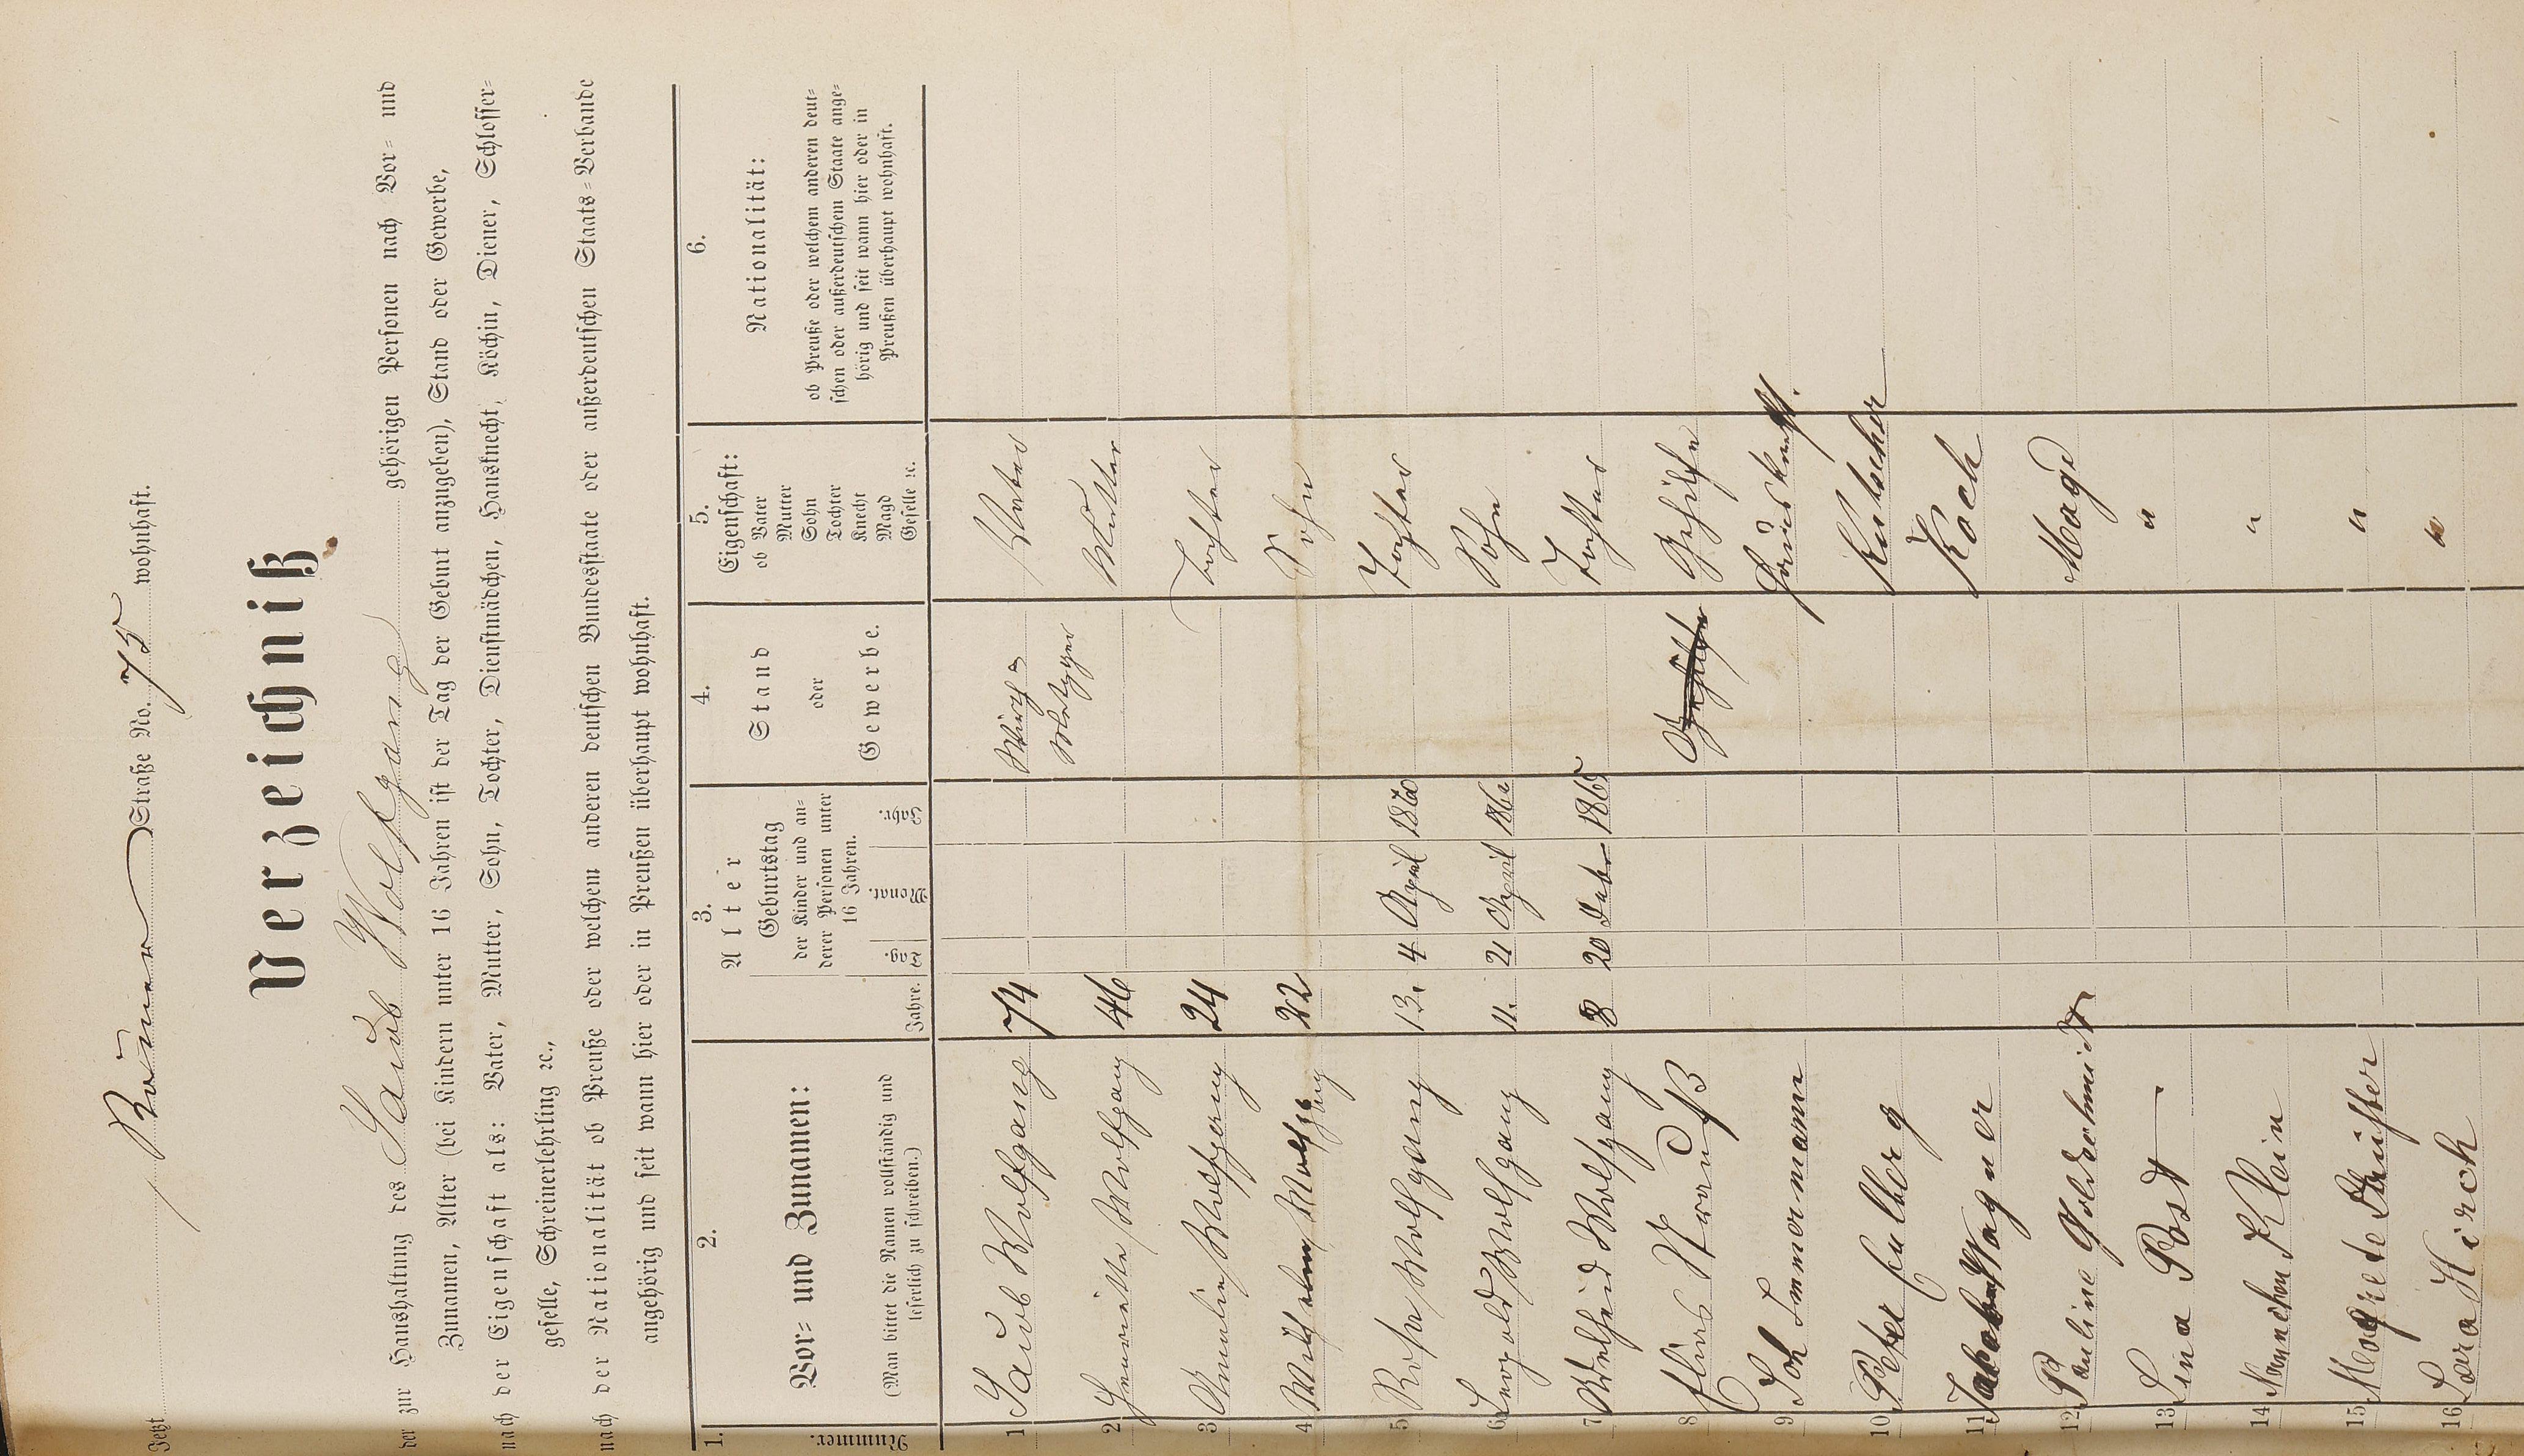 Jetzt Straße No. 75 wohnhaft.
Verzeichniß
der zur Haushaltung des Wolfgang gehörigen Personen nach Vor- und
Zunamen, Alter (bei Kindern unter 16 Jahren ist der Tag der Geburt anzugeben), Stand oder Gewerbe,
nach der Eigenschaft als: Vater, Mutter, Sohn, Tochter, Dienstmädchen, Hausknecht, Köchin, Diener, Schlosser-
geselle, Schreinerlehrling ꝛc.,
nach der Nationalität ob Preuße oder welchem anderen deutschen Bundesstaate oder außerdeutschen Staats-Verbande
angehörig und seit wann hier oder in Preußen überhaupt wohnhaft.
1. 2. 3. 4. 5. 6.
Nummer.
Vor- und Zunamen:
(Man bittet die Namen vollständig und
leserlich zu schreiben.)
Alter
Jahre.
Geburtstag
der Kinder und an-
derer Personen unter
16 Jahren.
Tag. Monat. Jahr.
Stand
oder
Gewerbe.
Eigenschaft:
ob Vater
Mutter
Sohn
Tochter
Knecht
Magd
Geselle ꝛc.
Nationalität:
ob Preuße oder welchem anderen deut-
schen oder außerdeutschem Staate ange-
hörig und seit wann hier oder in
Preußen überhaupt wohnhaft.
1 Wolfgang 74 Wirth Vater
Metzger
2 Henriette Wolfgang 46 Mutter
3 Wolfgang 24 Tochter
4 Wilhelm Wolfgang 22 Sohn
5 Rosa Wolfgang 13. 4 April Tochter
6 Leopold Wolfgang 11. 21 April Sohn
7 Wolfgang 8 20 1865 Tochter
8 Gehilfe Gehilfe
9 Joh Immermann Hausknecht.
10 Peter Fulberg Kutscher
11 Jakob Wagner Koch
12 Pauline Goldschmidt Magd
13 Lina Post "
14 Hannchen Klein "
15 "
16 Hirch "